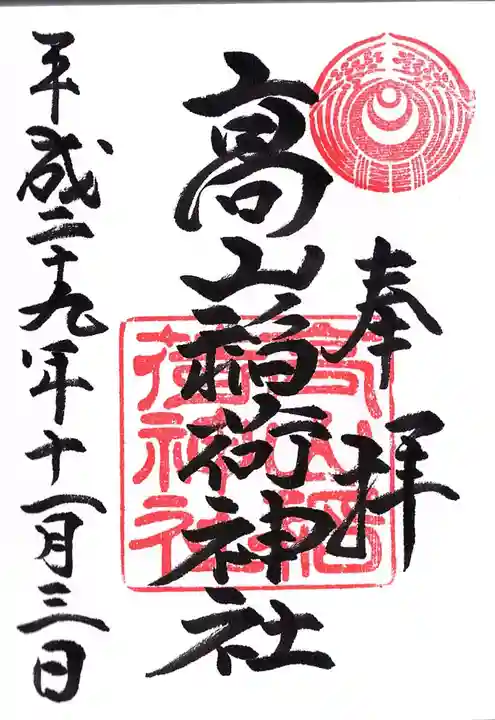 奉拝
高山稲荷神社
高山稲
荷神社
平成二十九年十一月三日